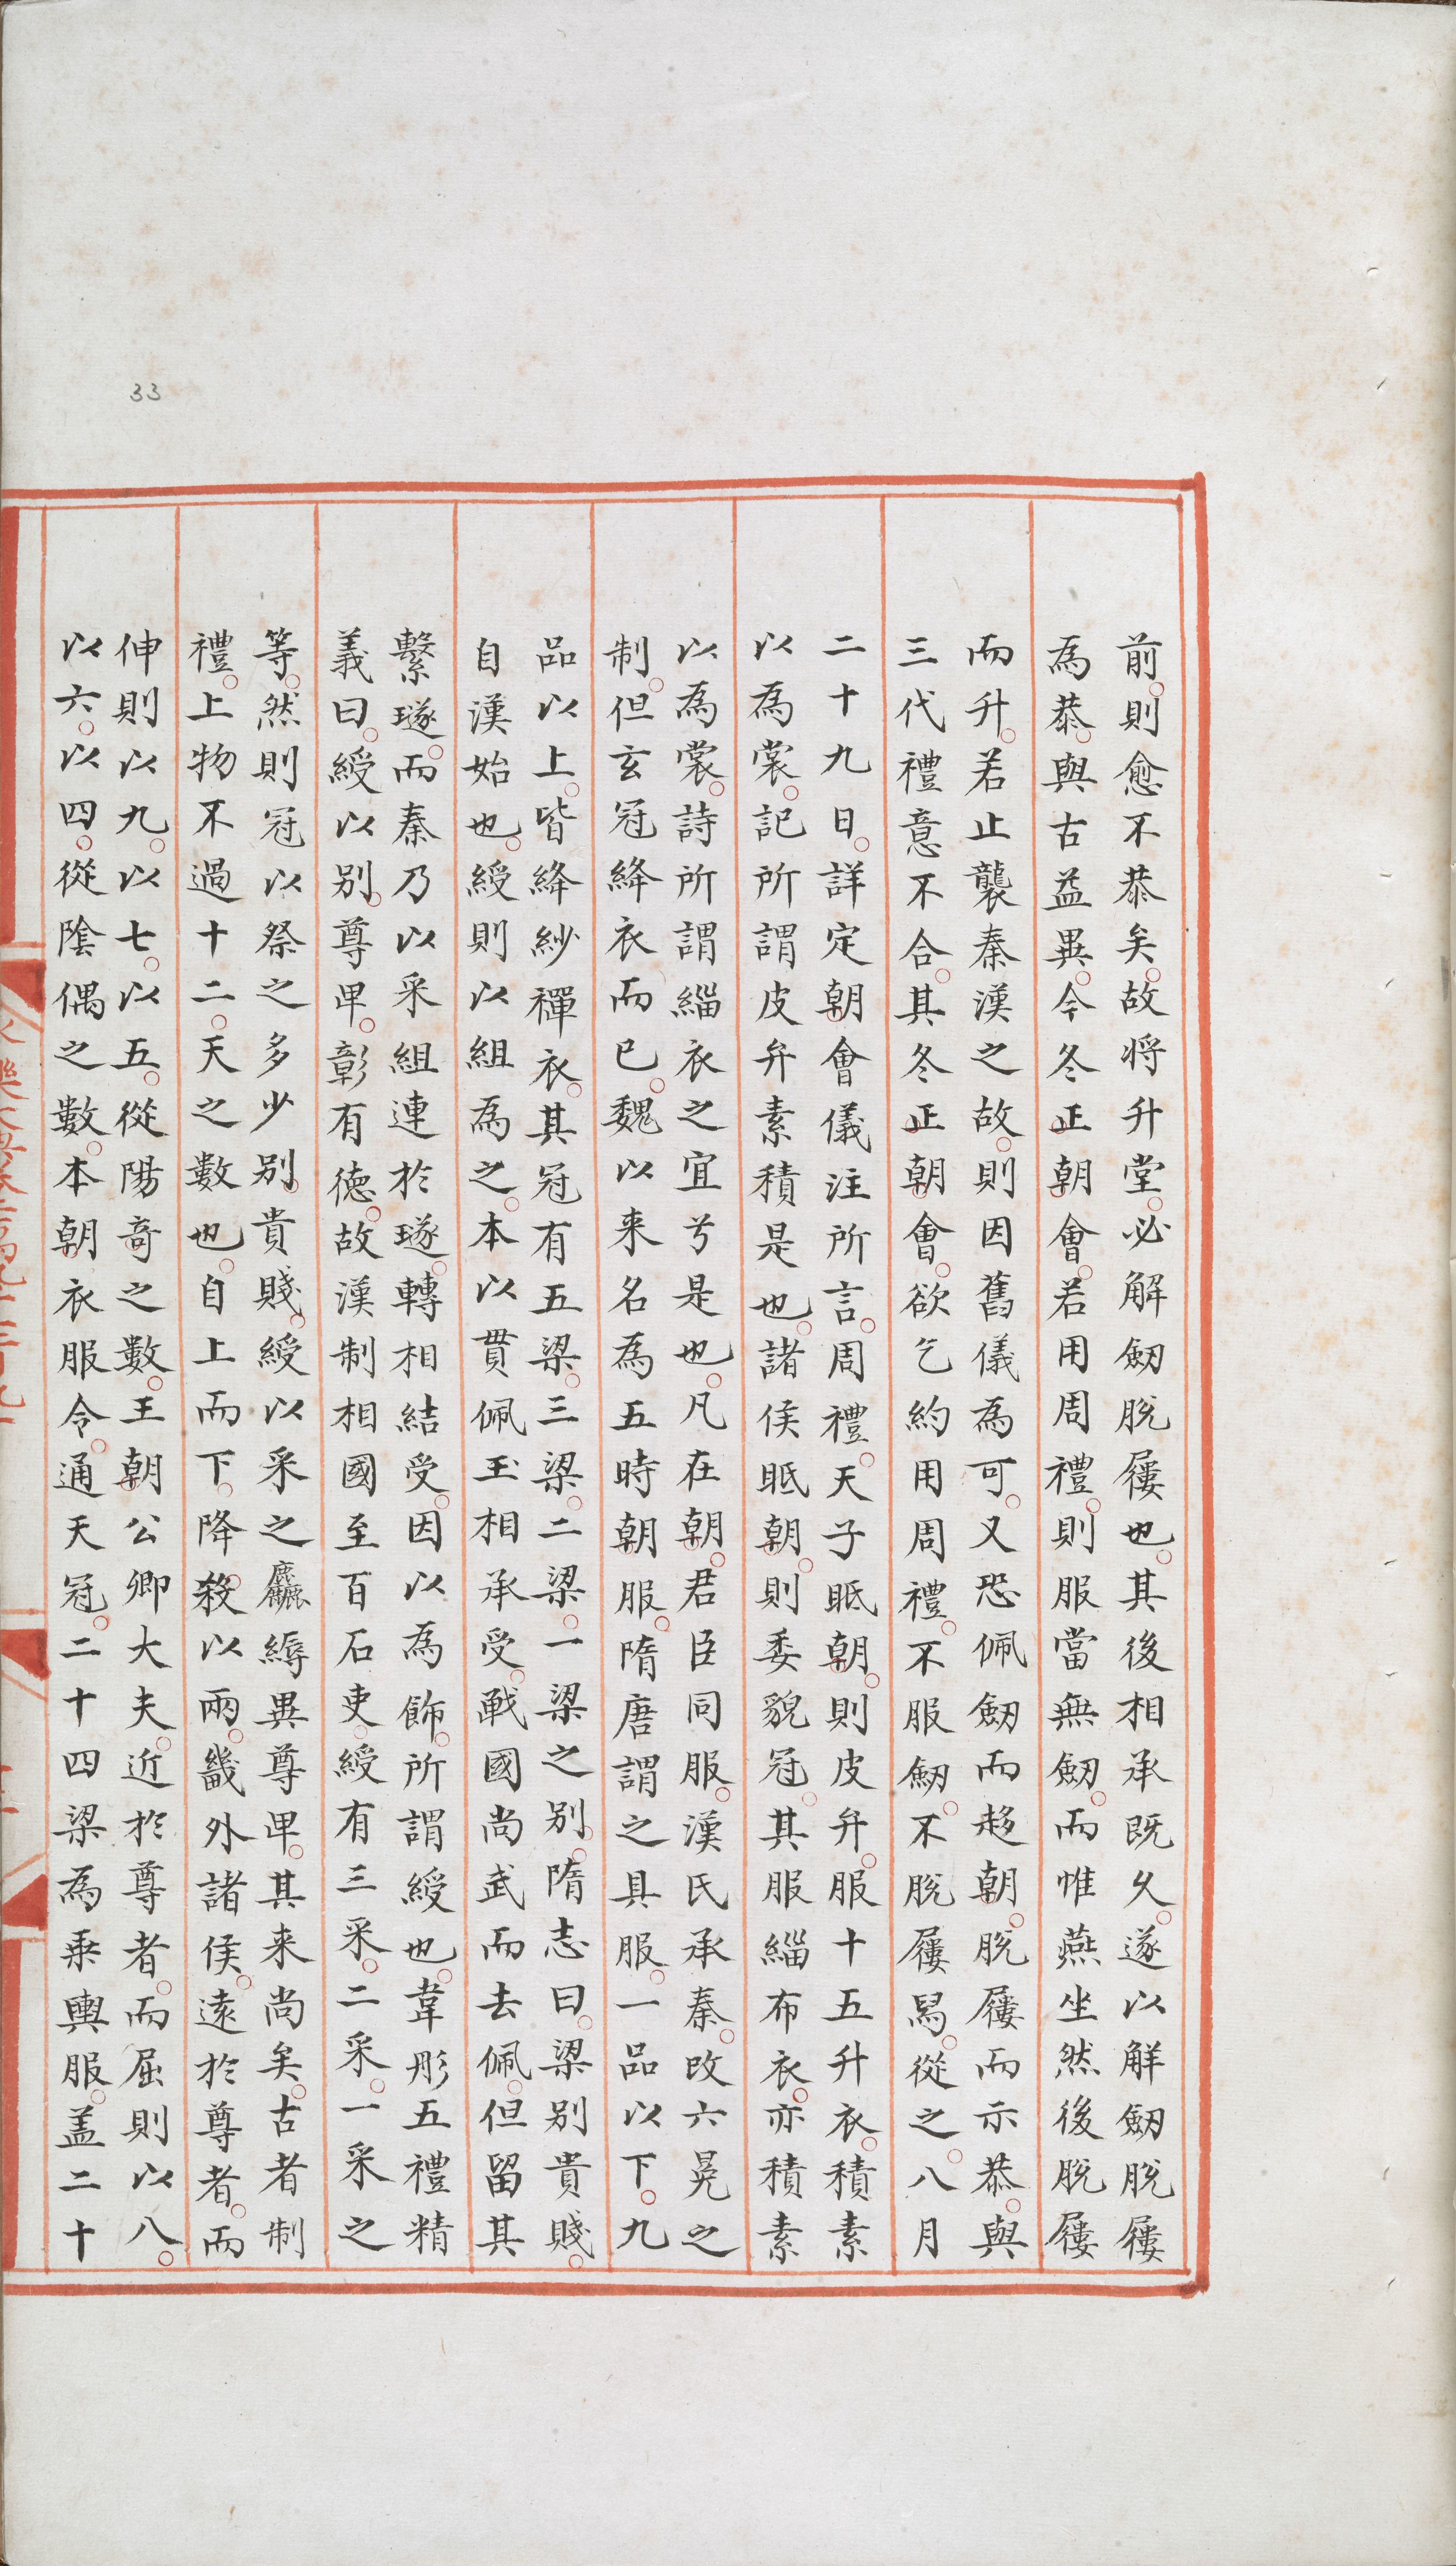 33
前則愈不恭矣故將升堂必解劒脫屨也其後相承既久遂以解劒脫屨
為恭與古益異今冬正朝會若用周禮則服當無劒而惟燕坐然後脫屨
而升若止襲秦漢之故則因舊儀為可又恐佩劒而趍朝脫屨而示恭與
三代禮意不合其冬正朝會欲乞約用周禮不服劒不脫屨舄從之八月
二十九日詳定朝會儀注所言周禮天子眡朝則皮弁服十五升衣積素
以為裳記所謂皮弁素積是也諸侯眡朝則委貌冠其服緇布衣亦積素
以為裳詩所謂緇衣之宜兮是也凡在朝君臣同服漢氏承秦改六冕之
制但玄冠絳衣而已魏以来名為五時朝服隋唐謂之具服一品以下九
品以上皆絳紗襌衣其冠有五梁三梁二梁一梁之別隋志曰梁別貴賤
自漢始也綬則以組為之本以貫佩玉相承受戰國尚武而去佩但留其
繫璲而秦乃以采組連於璲轉相結受因以為飾所謂綬也韋彤五禮精
義曰綬以別尊卑彰有德故漢制相國至百石吏綬有三采二采一采之
等然則冠以祭之多少別貴賤綬以采之麤縟異尊卑其来尚矣古者制
禮上物不過十二天之數也自上而下降殺以兩畿外諸侯遠於尊者而
伸則以九以七以五從陽奇之數王朝公卿大夫近於尊者而屈則以八
以六以四從陰偶之數本朝衣服令通天冠二十四梁為乗輿服盖二十